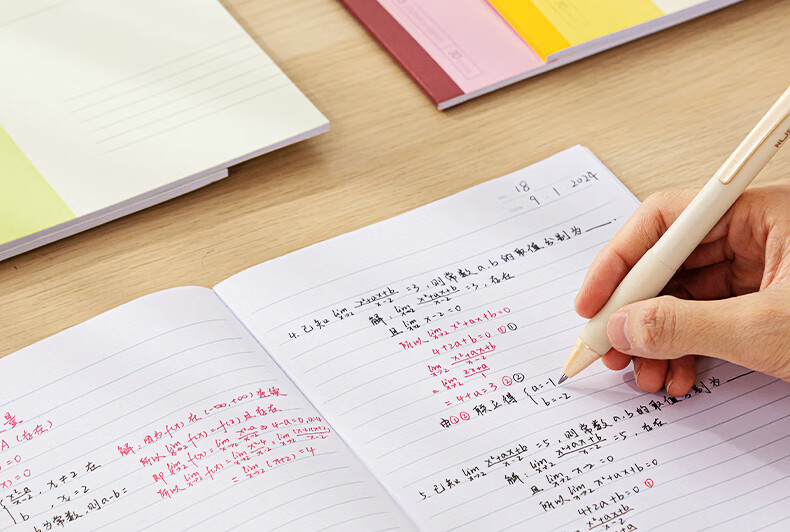 18
9 · 1 2024
4. 已知 lim x→2 (x²+ax+b)/(x-2) =3, 则常数 a.b 的取值分别为
解: lim x→2 (x²+ax+b)/(x-2) =3, 存在
且 lim x→2 x-2=0
所以 lim x→2 x²+ax+b=0
4+2a+b=0 ①
lim x→2 (x²+ax+b)/(x-2)
= lim x→2 (2x+a)/1
=4+a=3 ②
由①② 联立得 { a=-1
b=-2
5. 已知 lim x→2 (x²+ax+b)/(x-2) =5, 则常数 a.b 的取值分别为
解: lim x→2 (x²+ax+b)/(x-2) =5, 存在
且 lim x→2 x-2=0
所以 lim x→2 x²+ax+b=0
4+2a+b=0 ①
量
A (存在)
=0
)=0
, x≠2 在
b , x=2
为常数, 则 a·b=
解: 因为 f(x) 在 (-∞,+∞) 连续
所以 lim f(x) = f(2) 且存在
4-a=0, a=4
即 lim f(x) =
所以 lim f(x)
= lim x→2 (x+2) = 4